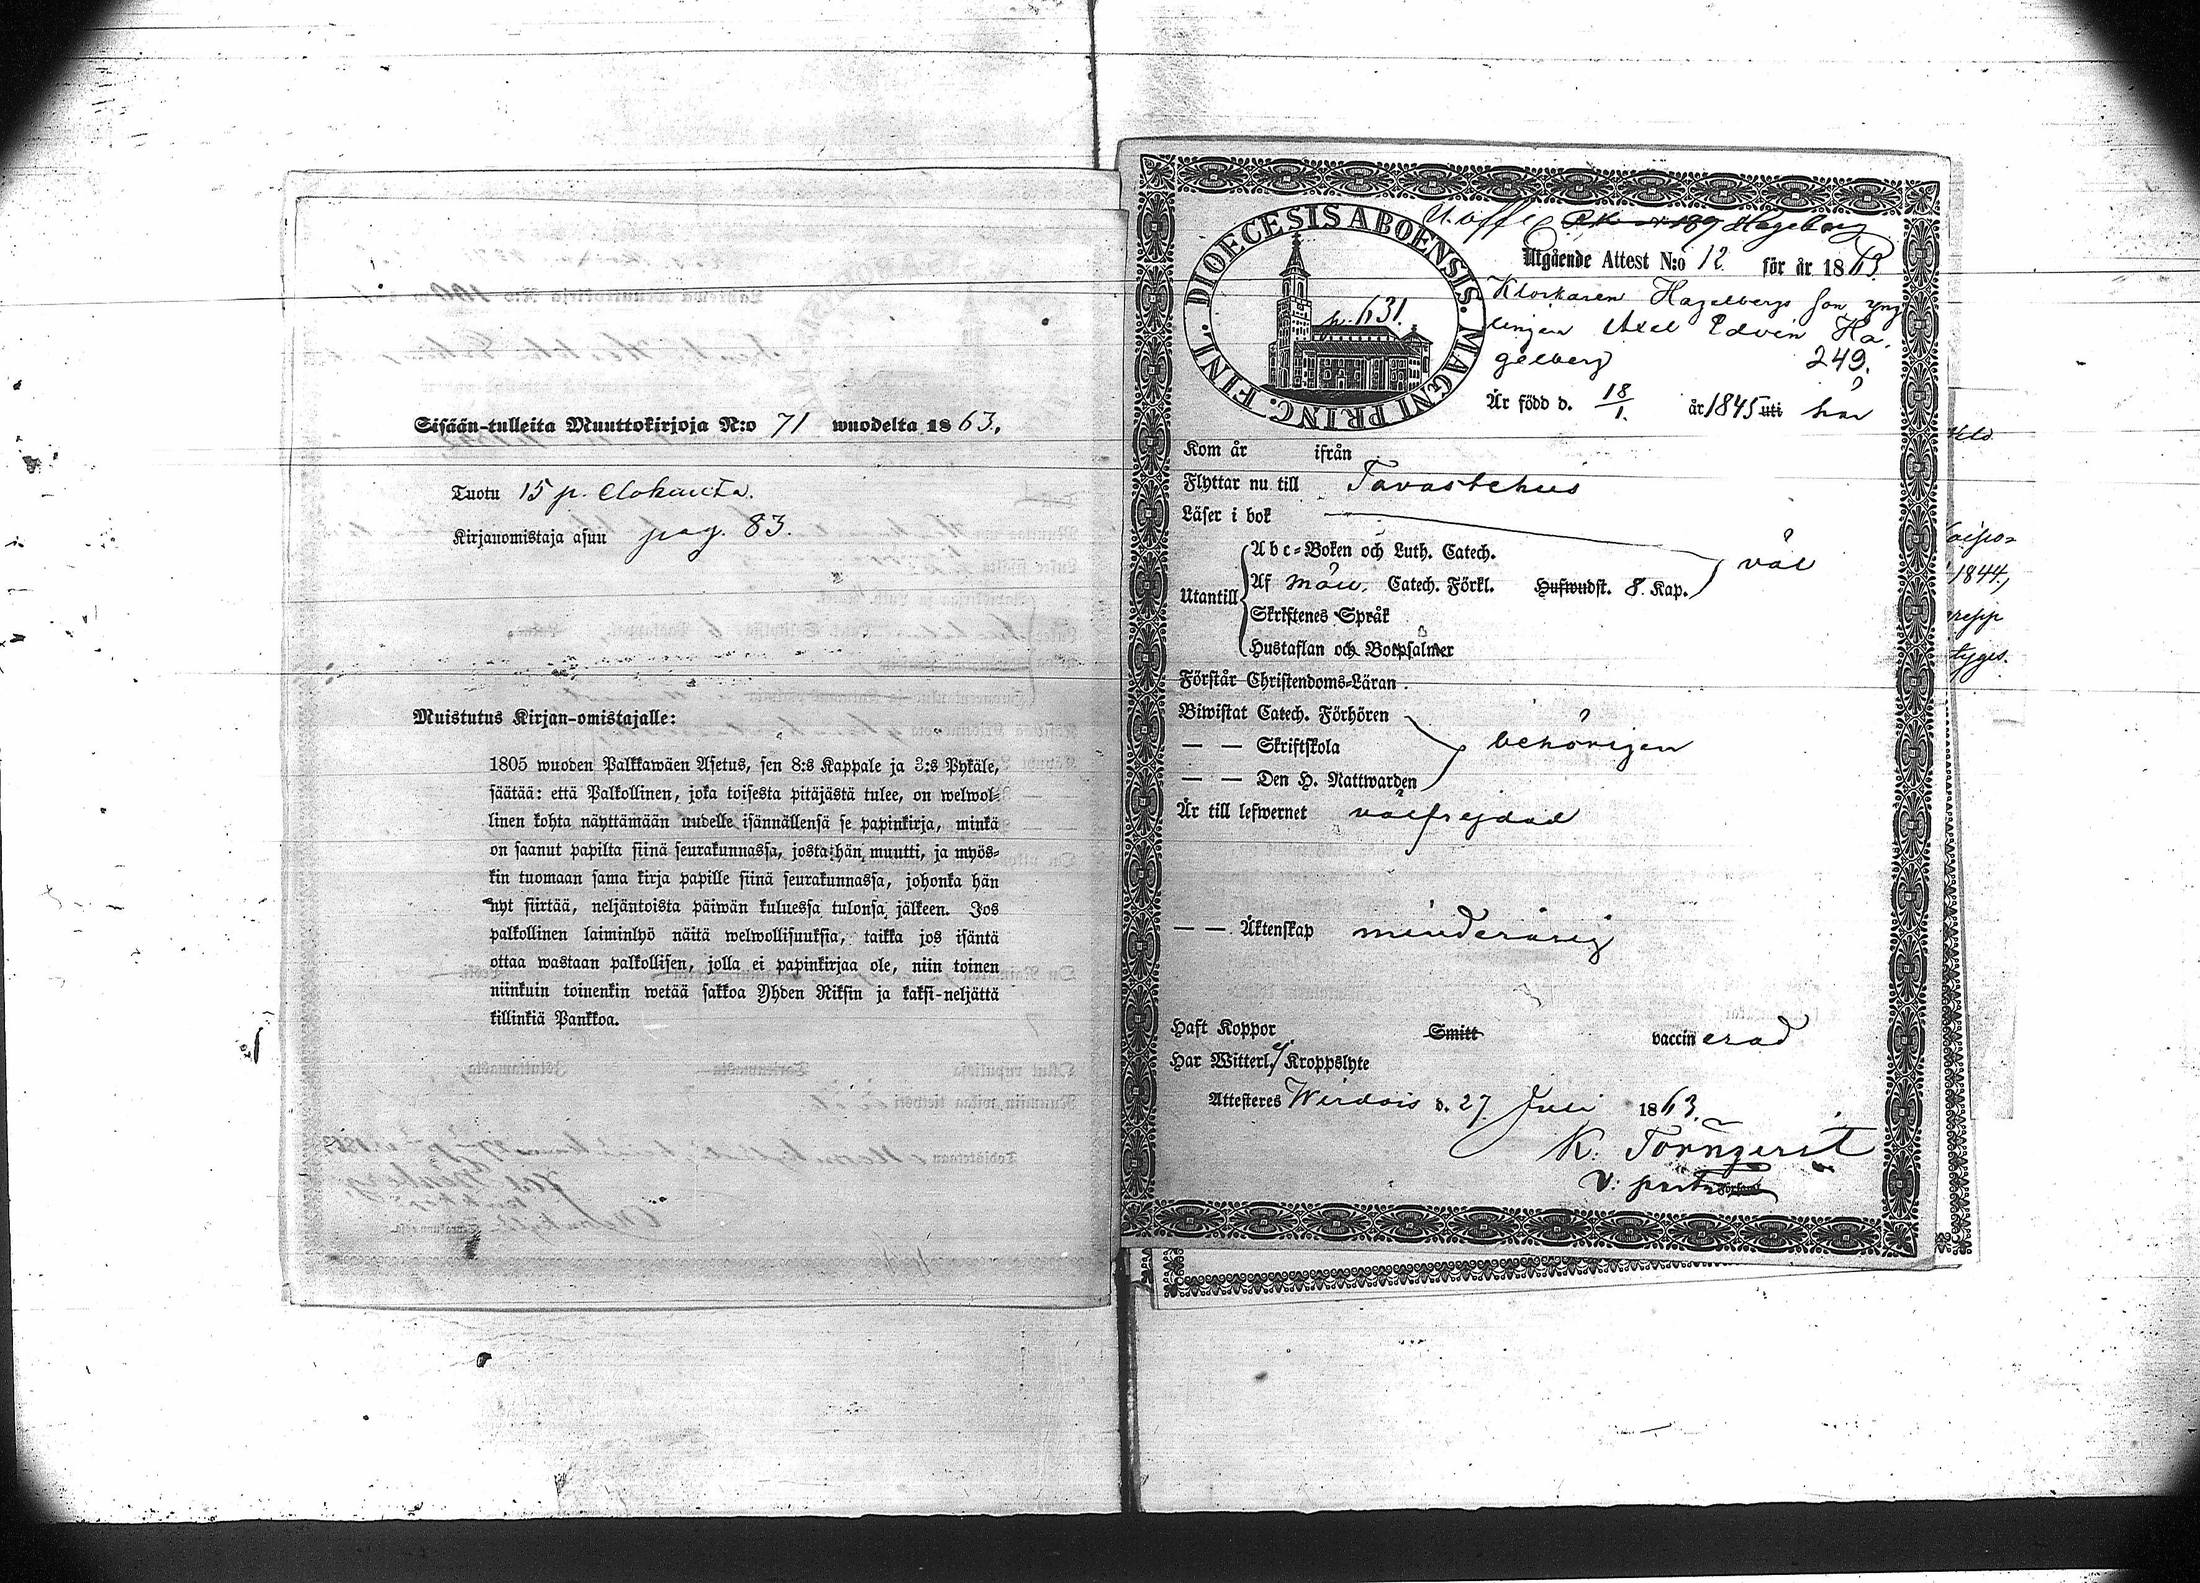 Sisään-tulleita Muuttokirjoja N:o 71 wuodelta 1863.
Tuotu 15 p. Elokuuta.
Kirjanomistaja asuu pag. 83.
Muistutus Kirjan-omistajalle:
1805 wuoden Palkkawäen Asetus, sen 8:s Kappale ja 3:s Pykäle,
säätää: että Palkollinen, joka toisesta pitäjästä tulee, on welwol-
linen kohta näyttämään uudelle isännällensä se papinkirja, minkä
on saanut papilta siinä seurakunnassa, josta hän muutti, ja myös-
kin tuomaan sama kirja papille siinä seurakunnassa, johonka hän
nyt siirtää, neljäntoista päiwän kuluessa tulonsa jälkeen. Jos
palkollinen laiminlyö näitä welwollisuuksia, taikka jos isäntä
ottaa wastaan palkollisen, jolla ei papinkirjaa ole, niin toinen
niinkuin toinenkin wetää sakkoa Yhden Riksin ja kaksi-neljättä
killinkiä Pankkoa.
DIOECESIS ABOENSIS. MAGNI PRINC. FINL.
Hageberg
p. 631.
Utgående Attest N:o 12 för år 1863.
Klockaren Hagelbergs son yng
lingen Axel Edvin Ha-
gelberg 249.
Är född d. 18/1. år 1845 uti här
Kom år ifrån
Flyttar nu till Tavastehus
Läser i bok
Abc-Boken och Luth. Catech. väl
Utantill Af Catech. Förkl. Hufwudst. 8. Kap.
Skriftenes Språk
Hustaflan och Botpsalmer
Förstår Christendoms-Läran
Biwistat Catech. Förhören
— — Skriftskola behörigen
— — Den H. Nattwarden
Är till lefwernet välfrejdad
— — Äktenskap minderårig
Haft Koppor Smitt vaccinerad
Har Witterl. ej Kroppslyte
Attesteras Wirdois d. 27 Juli 1863.
K. Törnqvist
V. past.
1844,